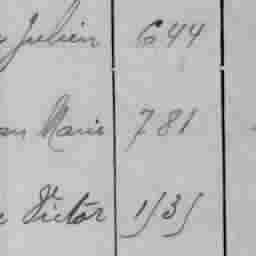 Julien 644
Marie 781
Victor 1535